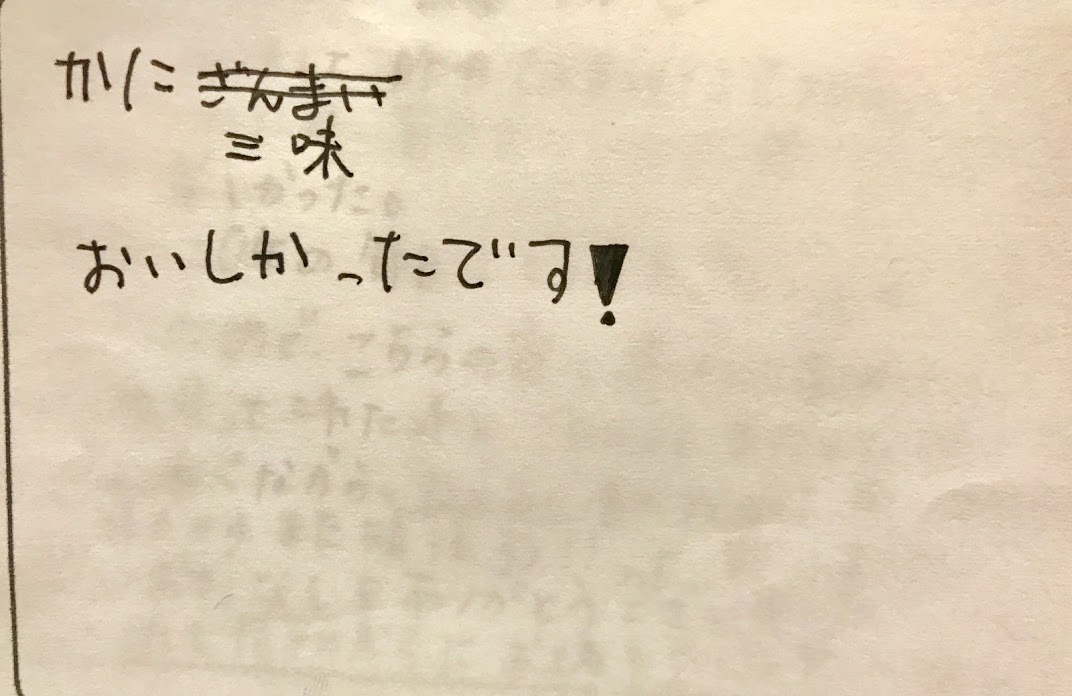 かにざんまい
三味
おいしかったです!